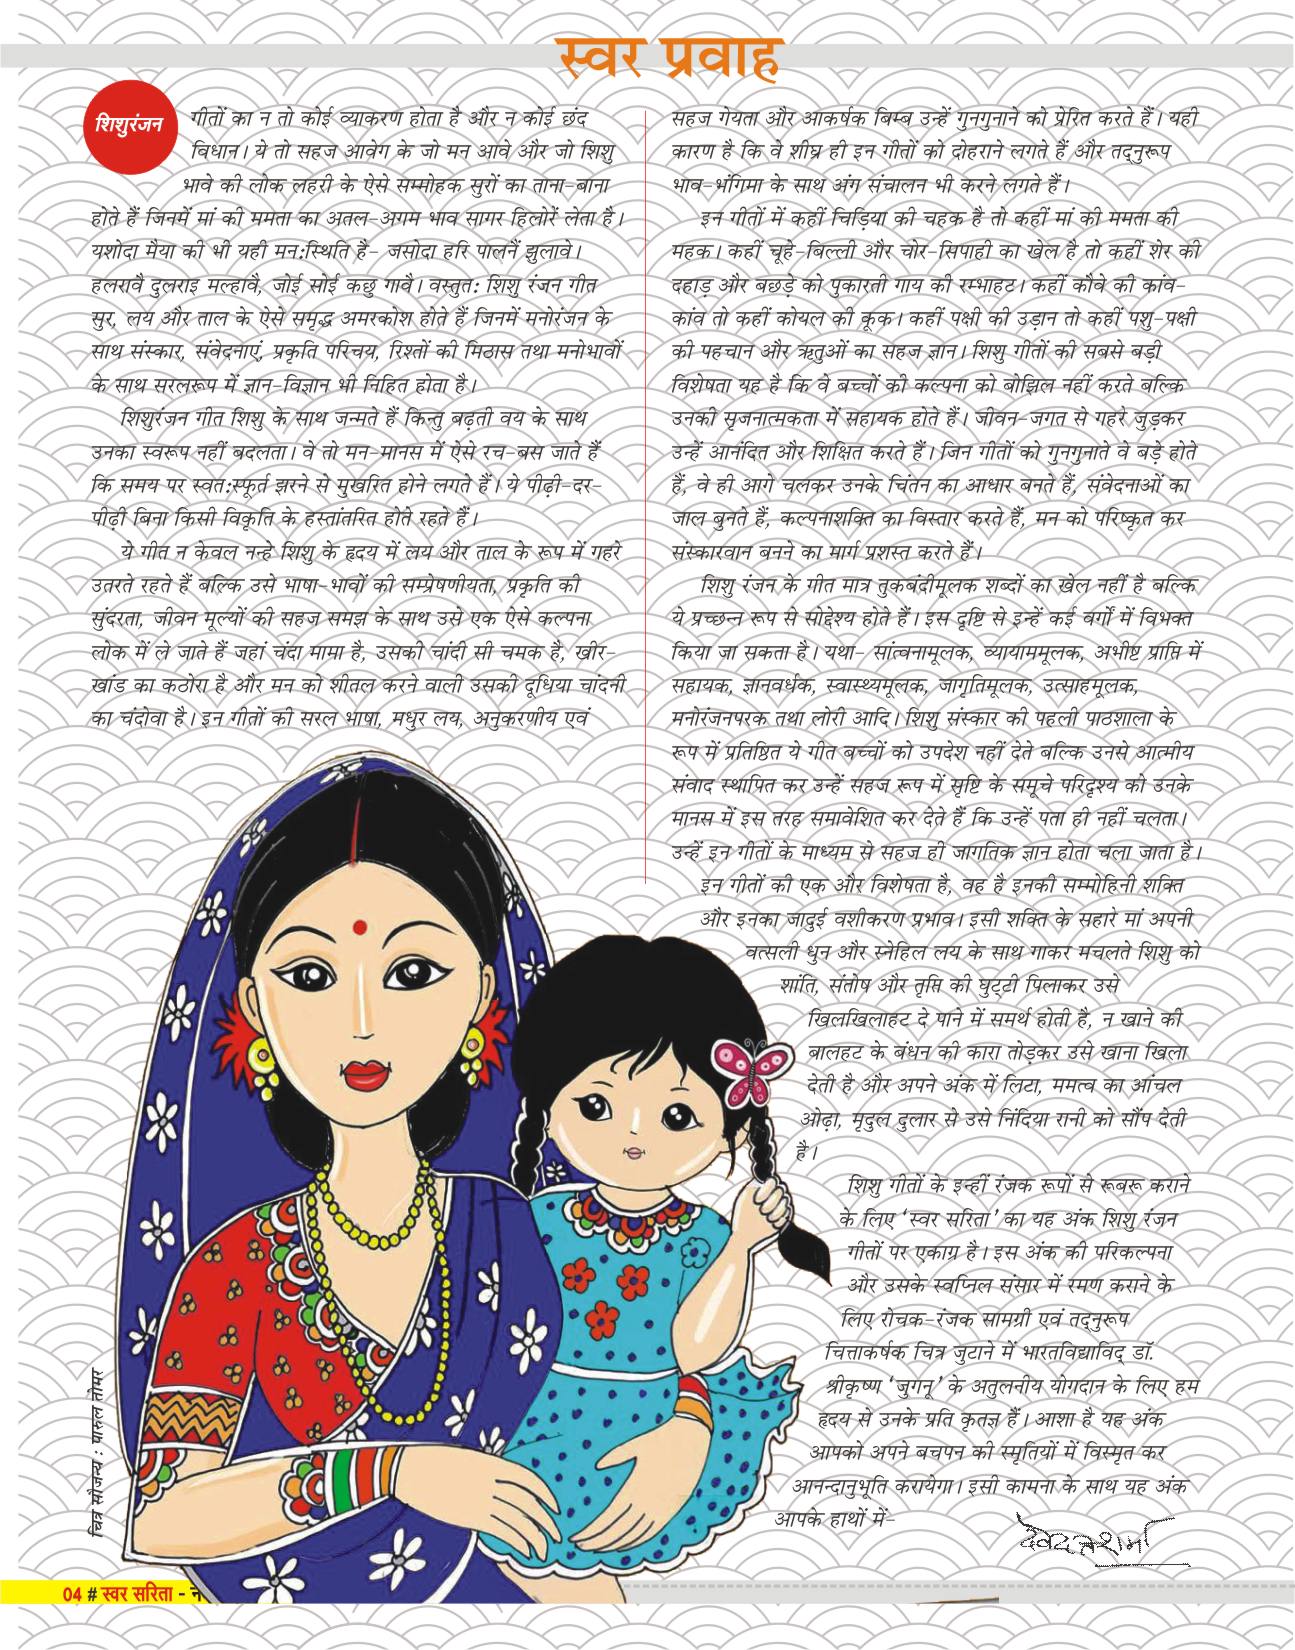 स्वर प्रवाह
शिशुरंजन
गीतों का न तो कोई व्याकरण होता है और न कोई छंद
विधान। ये तो सहज आवेग के जो मन आवे और जो शिशु
भावे की लोक लहरी के ऐसे सम्मोहक सुरों का ताना-बाना
होते हैं जिनमें मां की ममता का अतल-अगम भाव सागर हिलोरें लेता है।
यशोदा मैया की भी यही मन:स्थिति है- जसोदा हरि पालनैं झुलावे।
हलरावै दुलराइ मल्हावै, जोई सोई कछु गावै। वस्तुत: शिशु रंजन गीत
सुर, लय और ताल के ऐसे समृद्ध अमरकोश होते हैं जिनमें मनोरंजन के
साथ संस्कार, संवेदनाएं, प्रकृति परिचय, रिश्तों की मिठास तथा मनोभावों
के साथ सरलरूप में ज्ञान-विज्ञान भी निहित होता है।
शिशुरंजन गीत शिशु के साथ जन्मते हैं किन्तु बढ़ती वय के साथ
उनका स्वरूप नहीं बदलता। वे तो मन-मानस में ऐसे रच-बस जाते हैं
कि समय पर स्वत:स्फूर्त झरने से मुखरित होने लगते हैं। ये पीढ़ी-दर-
पीढ़ी बिना किसी विकृति के हस्तांतरित होते रहते हैं।
ये गीत न केवल नन्हे शिशु के हृदय में लय और ताल के रूप में गहरे
उतरते रहते हैं बल्कि उसे भाषा-भावों की सम्प्रेषणीयता, प्रकृति की
सुंदरता, जीवन मूल्यों की सहज समझ के साथ उसे एक ऐसे कल्पना
लोक में ले जाते हैं जहां चंदा मामा है, उसकी चांदी सी चमक है, खीर-
खांड का कठोरा है और मन को शीतल करने वाली उसकी दूधिया चांदनी
का चंदोवा है। इन गीतों की सरल भाषा, मधुर लय, अनुकरणीय एवं
सहज गेयता और आकर्षक बिम्ब उन्हें गुनगुनाने को प्रेरित करते हैं। यही
कारण है कि वे शीघ्र ही इन गीतों को दोहराने लगते हैं और तद्नुरूप
भाव-भंगिमा के साथ अंग संचालन भी करने लगते हैं।
इन गीतों में कहीं चिड़िया की चहक है तो कहीं मां की ममता की
महक। कहीं चूहे-बिल्ली और चोर-सिपाही का खेल है तो कहीं शेर की
दहाड़ और बछड़े को पुकारती गाय की रम्भाहट। कहीं कौवे की कांव-
कांव तो कहीं कोयल की कूक। कहीं पक्षी की उड़ान तो कहीं पशु-पक्षी
की पहचान और ऋतुओं का सहज ज्ञान। शिशु गीतों की सबसे बड़ी
विशेषता यह है कि वे बच्चों की कल्पना को बोझिल नहीं करते बल्कि
उनकी सृजनात्मकता में सहायक होते हैं। जीवन-जगत से गहरे जुड़कर
उन्हें आनंदित और शिक्षित करते हैं। जिन गीतों को गुनगुनाते वे बड़े होते
हैं, वे ही आगे चलकर उनके चिंतन का आधार बनते हैं, संवेदनाओं का
जाल बुनते हैं, कल्पनाशक्ति का विस्तार करते हैं, मन को परिष्कृत कर
संस्कारवान बनने का मार्ग प्रशस्त करते हैं।
शिशु रंजन के गीत मात्र तुकबंदीमूलक शब्दों का खेल नहीं है बल्कि
ये प्रच्छन्न रूप से सोद्देश्य होते हैं। इस दृष्टि से इन्हें कई वर्गों में विभक्त
किया जा सकता है। यथा- सांत्वनामूलक, व्यायाममूलक, अभीष्ट प्राप्ति में
सहायक, ज्ञानवर्धक, स्वास्थ्यमूलक, जागृतिमूलक, उत्साहमूलक,
मनोरंजनपरक तथा लोरी आदि। शिशु संस्कार की पहली पाठशाला के
रूप में प्रतिष्ठित ये गीत बच्चों को उपदेश नहीं देते बल्कि उनसे आत्मीय
संवाद स्थापित कर उन्हें सहज रूप में सृष्टि के समूचे परिदृश्य को उनके
मानस में इस तरह समावेशित कर देते हैं कि उन्हें पता ही नहीं चलता।
उन्हें इन गीतों के माध्यम से सहज ही जागतिक ज्ञान होता चला जाता है।
इन गीतों की एक और विशेषता है, वह है इनकी सम्मोहिनी शक्ति
और इनका जादुई वशीकरण प्रभाव। इसी शक्ति के सहारे मां अपनी
वत्सली धुन और स्नेहिल लय के साथ गाकर मचलते शिशु को
शांति, संतोष और तृप्ति की घुट्टी पिलाकर उसे
खिलखिलाहट दे पाने में समर्थ होती है, न खाने की
बालहट के बंधन की कारा तोड़कर उसे खाना खिला
देती है और अपने अंक में लिटा, ममत्व का आंचल
ओढ़ा, मृदुल दुलार से उसे निंदिया रानी को सौंप देती
है।
शिशु गीतों के इन्हीं रंजक रूपों से रूबरू कराने
के लिए ‘स्वर सरिता’ का यह अंक शिशु रंजन
गीतों पर एकाग्र है। इस अंक की परिकल्पना
और उसके स्वप्निल संसार में रमण कराने के
लिए रोचक-रंजक सामग्री एवं तद्नुरूप
चित्ताकर्षक चित्र जुटाने में भारतविद्याविद् डॉ.
श्रीकृष्ण ‘जुगनू’ के अतुलनीय योगदान के लिए हम
हृदय से उनके प्रति कृतज्ञ हैं। आशा है यह अंक
आपको अपने बचपन की स्मृतियों में विस्मृत कर
आनन्दानुभूति करायेगा। इसी कामना के साथ यह अंक
आपके हाथों में-
चित्र सौजन्य : पारुल तोमर
04 # स्वर सरिता -